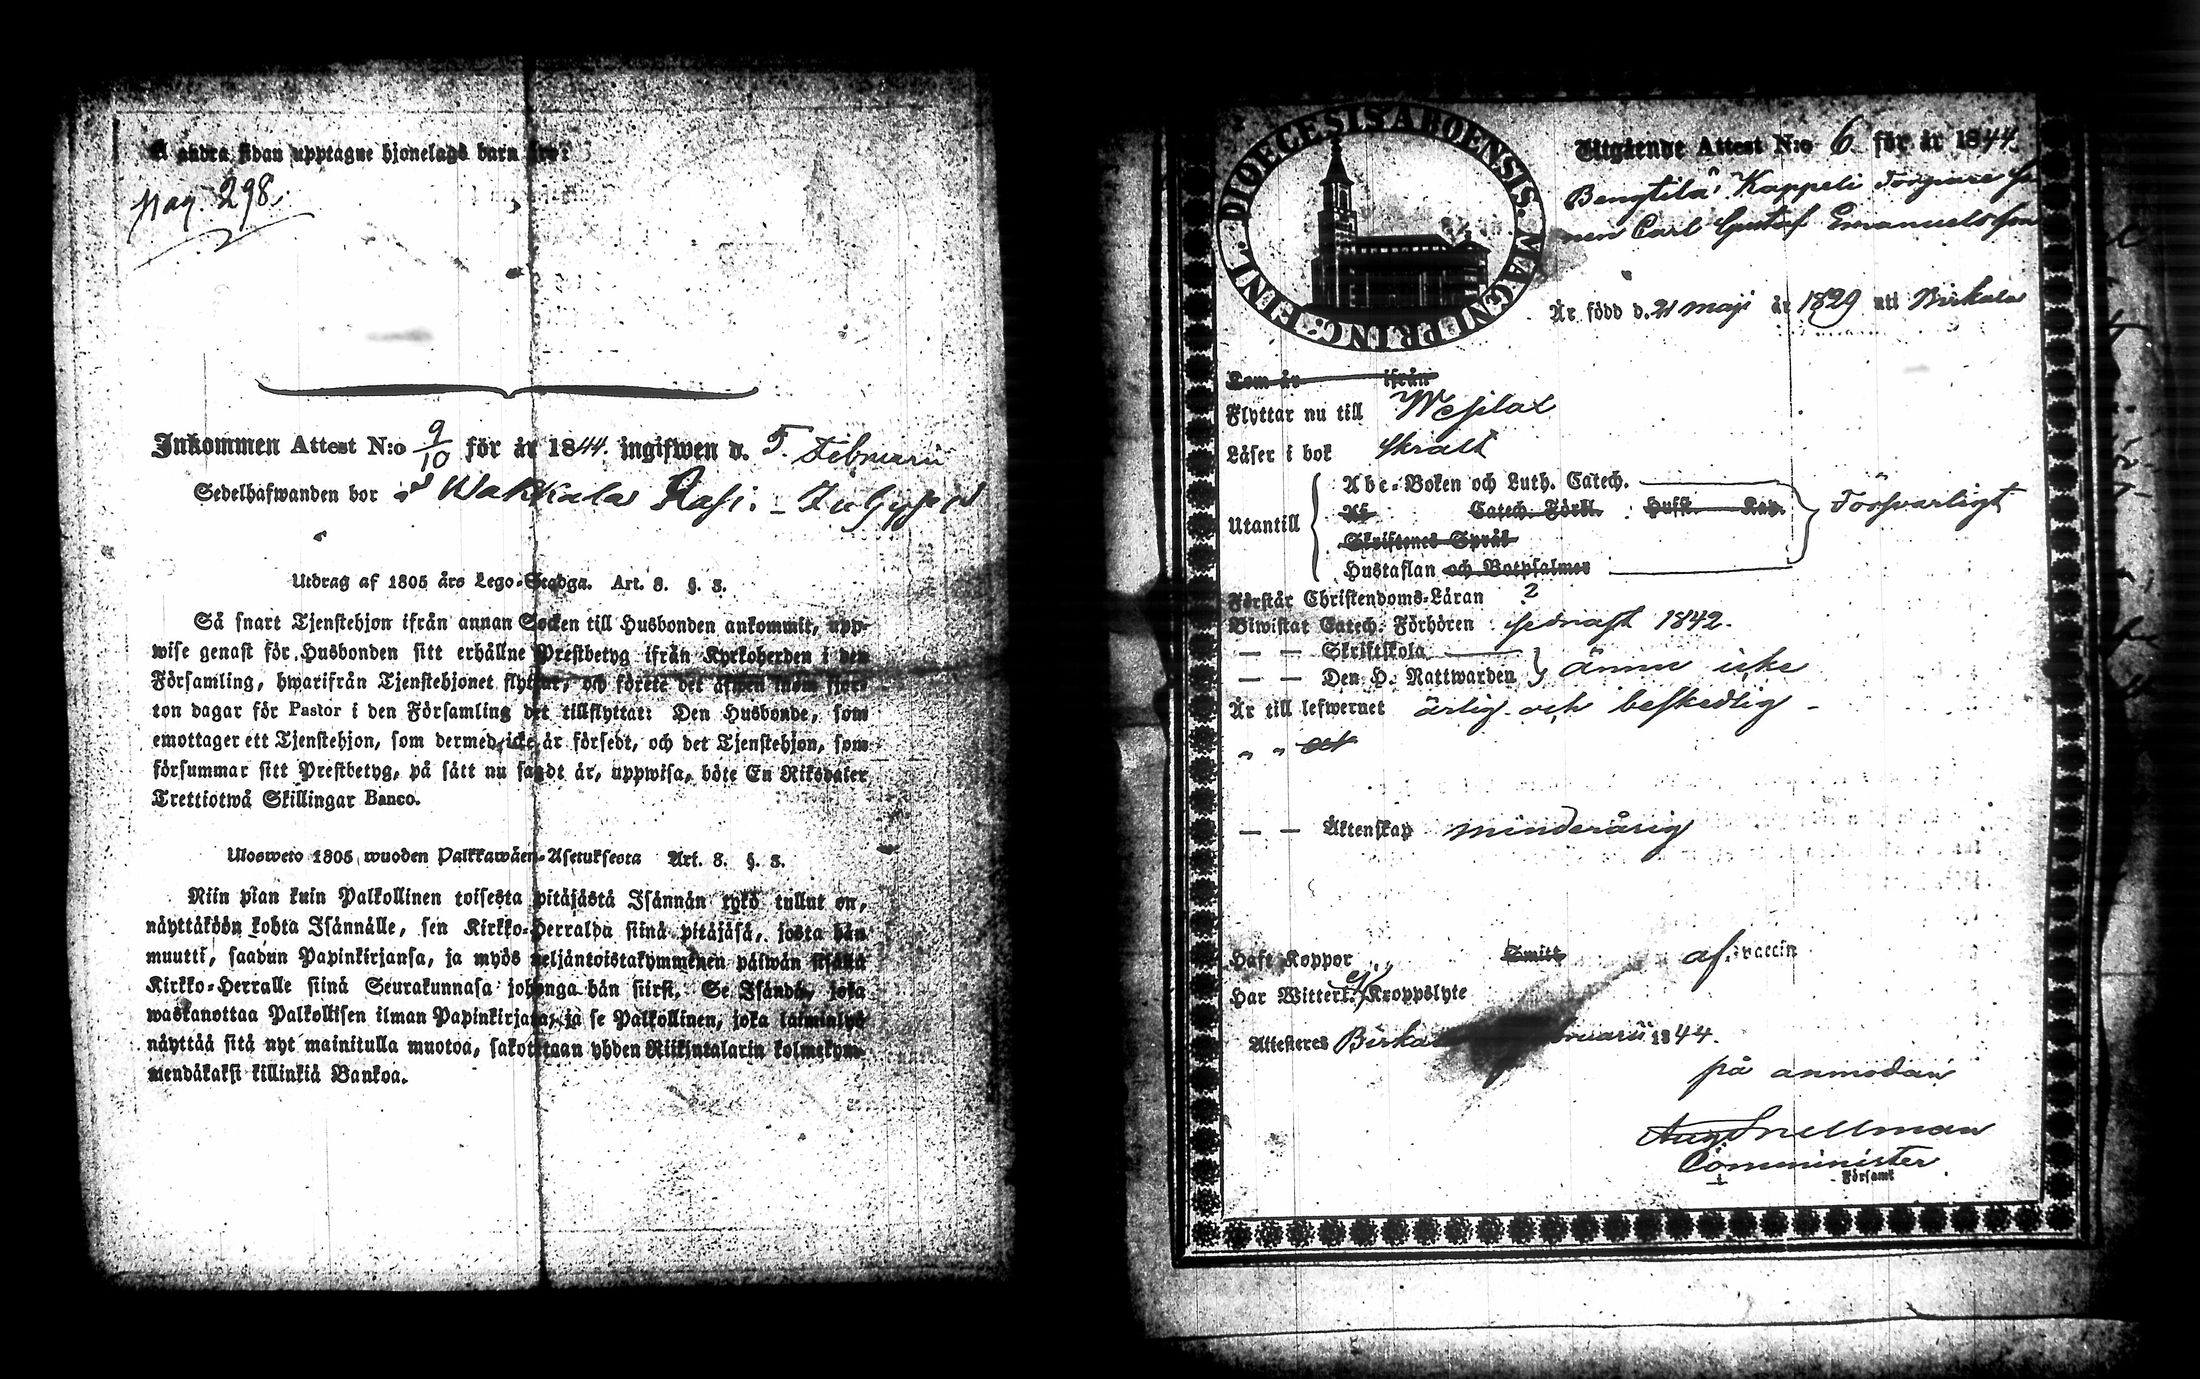 Å andra sidan upptagne hjonelags barn äro:
pag. 298.
Inkommen Attest N:o 9/10 för år 1844. ingifwen d. 5 Februari
Sedelhafwanden bor å Wakkala Rasi.
Utdrag af 1805 års Lego-Stadga. Art. 8. §. 3.
Så snart Tjenstehjon ifrån annan Socken till Husbonden ankommit, upp-
wise genast för Husbonden sitt erhållne Prestbetyg ifrån Kyrkoherden i den
Församling, hwarifrån Tjenstehjonet flyttat, och förete det äfwen inom fjor-
ton dagar för Pastor i den Församling det tillflyttat: Den Husbonde, som
emottager ett Tjenstehjon, som dermed icke är försedt, och det Tjenstehjon, som
försummar sitt Prestbetyg, på sätt nu sagdt är, uppwisa, böte En Riksdaler
Trettiotwå Skillingar Banco.
Ulosweto 1805 wuoden Palkkawäen-Asetuksesta Art. 8. §. 3.
Niin pian kuin Palkollinen toisesta pitäjästä Isännän tykö tullut on,
näyttäköön kohta Isännälle, sen Kirkko-Herralda siinä pitäjäsä, josta hän
muutti, saadun Papinkirjansa, ja myös neljäntoistakymmenen päiwän sisällä
Kirkko-Herralle siinä Seurakunnasa johonga hän siirsi. Se Isändä, joka
wastanottaa Palkollisen ilman Papinkirjata, ja se Palkollinen, joka laiminlyö
näyttää sitä nyt mainitulla muotoa, sakotetaan yhden Riikintalarin kolmekym-
mendäkaksi killinkiä Bankoa.
FINL. DIOECESIS ABOENSIS. MAGNI PRINC:
Utgående Attest N:o 6 för år 1844.
Bengtilä, Kappeli Torpare So
nen Carl Gustaf Emanuelsson
Är född d. 21 maji år 1829 uti Birkala
Kom år ifrån
Flyttar nu till Wesilax
Läser i bok skralt
Abc-Boken och Luth. Catech.
Catech. Förkl. Husst. Kap.
Utantill Försvarligt
Skriftenes Språk
Hustaflan och Botpsalmer
Förstår Christendoms-Läran ?
Biwistat Catech. Förhören sednast 1842.
— — Skriftskola
— — Den H. Nattwarden ännu icke
Är till lefwernet ärlig och beskedlig
" " och
— — Äktenskap minderårig
Haft Koppor Smitt af vaccin
Har Witterl. ej Kroppslyte
Attesteras Birka bruarii 1844.
på anmodan
Aug Snellman
Comminister
i Förs:aml